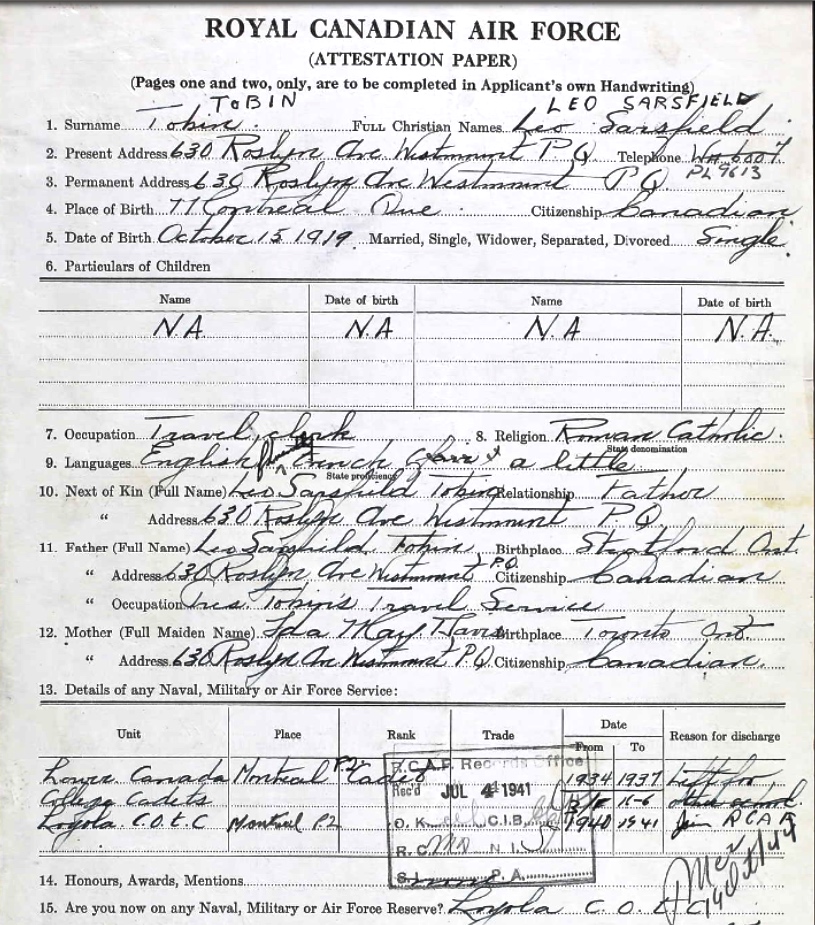 ROYAL CANADIAN AIR FORCE
(ATTESTATION PAPER)
(Pages one and two, only, are to be completed in Applicant's own Handwriting)
TOBIN LEO SARSFIELD
1. Surname Tobin FULL Christian Names Leo Sarsfield
2. Present Address 630 Roslyn Ave Westmount P.Q. Telephone
PL 9613
3. Permanent Address 630 Roslyn Ave Westmount P Q
4. Place of Birth Montreal Que Citizenship Canadian
5. Date of Birth October 15 1919 Married, Single, Widower, Separated, Divorced Single
6. Particulars of Children
Name Date of birth Name Date of birth
N.A N.A N.A N.A.
7. Occupation Travel clerk 8. Religion Roman Catholic
State denomination
9. Languages English French a little
State proficiency
10. Next of Kin (Full Name) Leo Sarsfield Tobin Relationship Father
" Address 630 Roslyn Ave Westmount P Q
11. Father (Full Name) Leo Sarsfield Tobin Birthplace Stratford Ont.
" Address 630 Roslyn Ave Westmount P.Q. Citizenship Canadian
" Occupation Pres. Tobin's Travel Service
12. Mother (Full Maiden Name) Ida May Birthplace Toronto Ont
" Address 630 Roslyn Ave Westmount P.Q. Citizenship Canadian.
13. Details of any Naval, Military or Air Force Service:
Unit Place Rank Trade Date Reason for discharge
From To
Lower Canada Montreal P2 Cadet 1934 1937 Left for
College Cadets other school
Loyola C.O.T.C Montreal P2 1940 1941 Join RCAF
R.C.A.F. Records Office
Rec'd JUL 4 1941
O.K. C.I.B.
R.C. N.I.
S.L. P.A.
14. Honours, Awards, Mentions
15. Are you now on any Naval, Military or Air Force Reserve? Loyola C.O.T.C